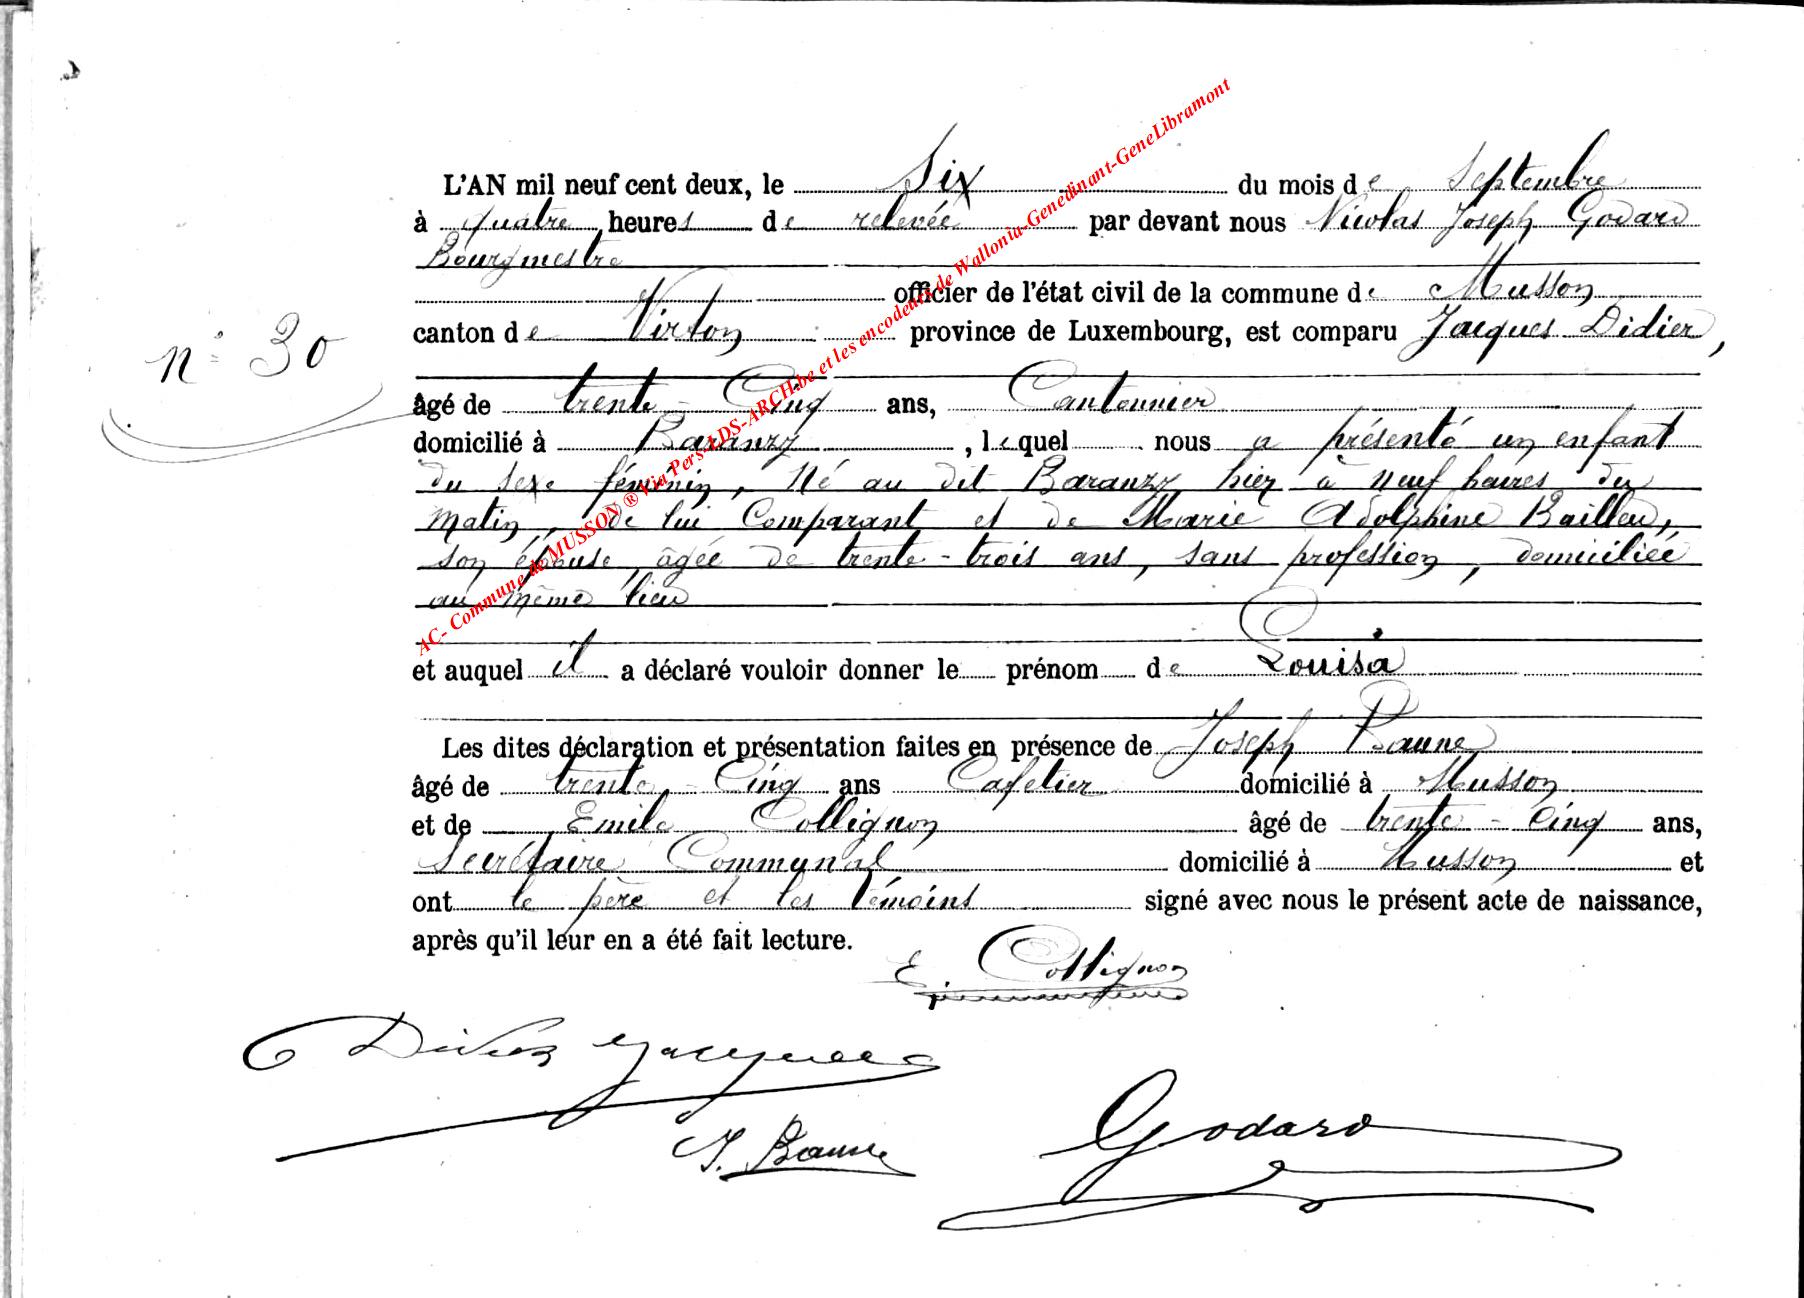 L'AN mil neuf cent deux, le Six du mois de Septembre
à quatre heures de relevée par devant nous Nicolas Joseph Godard
Bourgmestre
officier de l'état civil de la commune de Musson
canton de Virton province de Luxembourg, est comparu Jacques Didier,
n° 30
âgé de trente-Cinq ans, Cantonnier
domicilié à Baranzy, lequel nous a présenté un enfant
du sexe féminin, Né au dit Baranzy hier à neuf heures du
matin, de lui Comparant et de Marie Adolphine Bailleu,
son épouse, âgée de trente-trois ans, sans profession, domiciliée
au même lieu
et auquel il a déclaré vouloir donner le prénom de Louisa
Les dites déclaration et présentation faites en présence de Joseph Baune
âgé de trente-Cinq ans Cafetier domicilié à Musson
et de Emile Collignon âgé de trente-Cinq ans,
Secrétaire Communal domicilié à Musson et
ont le père et les témoins signé avec nous le présent acte de naissance,
après qu'il leur en a été fait lecture.
E. Collignon
Didier Jacques
J. Baune
Godard
AC- Commune de MUSSON ® Via Pers-ADS-ARCH.be et les encodeurs de Wallonia-Genedinant-GeneLibramont